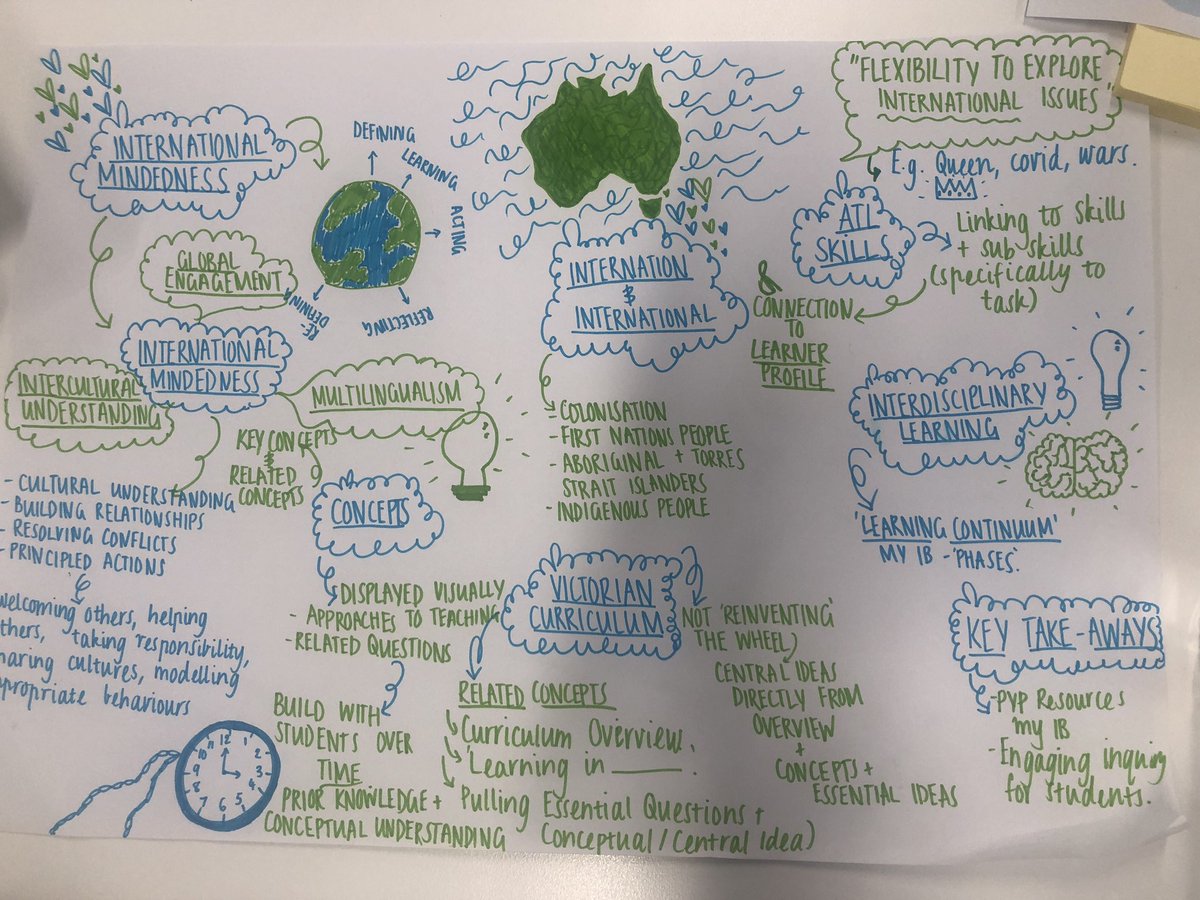 INTERNATIONAL
MINDEDNESS
DEFINING
LEARNING
ACTING
REFLECTING
RE-
DEFINING
GLOBAL
ENGAGEMENT
INTERNATIONAL
MINDEDNESS
INTERCULTURAL
UNDERSTANDING
MULTILINGUALISM
- CULTURAL UNDERSTANDING
- BUILDING RELATIONSHIPS
- RESOLVING CONFLICTS
- PRINCIPLED ACTIONS
welcoming others, helping
thers, taking responsibility,
haring cultures, modelling
propriate behaviours
KEY CONCEPTS
&
RELATED
CONCEPTS
CONCEPTS
DISPLAYED VISUALLY
- APPROACHES TO TEACHING
- RELATED QUESTIONS
BUILD WITH
STUDENTS OVER
TIME
PRIOR KNOWLEDGE +
CONCEPTUAL UNDERSTANDING
12
1
2
3
4
5
6
7
8
9
10
11
INTERNATION
&
INTERNATIONAL
- COLONISATION
- FIRST NATIONS PEOPLE
- ABORIGINAL + TORRES
STRAIT ISLANDERS
- INDIGENOUS PEOPLE
VICTORIAN
CURRICULUM
RELATED CONCEPTS
Curriculum Overview.
'Learning in ______.
Pulling Essential Questions +
Conceptual / Central Idea)
NOT 'REINVENTING'
THE WHEEL)
CENTRAL IDEAS
DIRECTLY FROM
OVERVIEW
+
CONCEPTS +
ESSENTIAL IDEAS
"FLEXIBILITY TO EXPLORE
INTERNATIONAL ISSUES"
E.g. Queen, covid, wars.
ATL
SKILLS
Linking to skills
+ sub-skills
(specifically to
task)
&
CONNECTION
TO
LEARNER
PROFILE
INTERDISCIPLINARY
LEARNING
'LEARNING CONTINUUM'
MY IB - 'PHASES'.
KEY TAKE-AWAYS
- PYP Resources
my IB
- Engaging inquiry
for students.